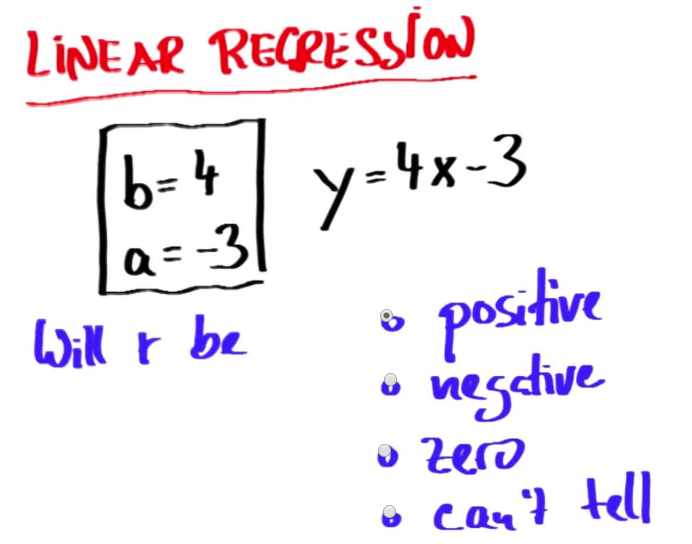 LINEAR REGRESSION
b=4
a=-3
y=4x-3
Will r be
positive
negative
zero
can't tell